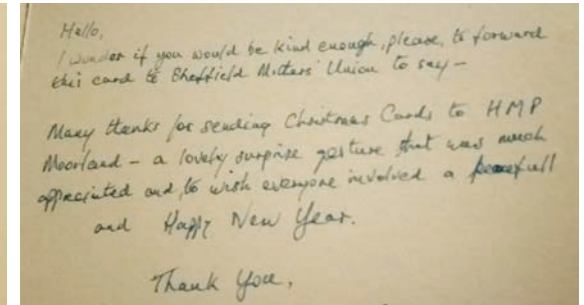 Hello,
I wonder if you would be kind enough, please, to forward
this card to Sheffield Mothers' Union to say –
Many thanks for sending Christmas Cards to HMP
Moorland – a lovely surprise gesture that was much
appreciated and, to wish everyone involved a peacefull
and Happy New Year.
Thank You,